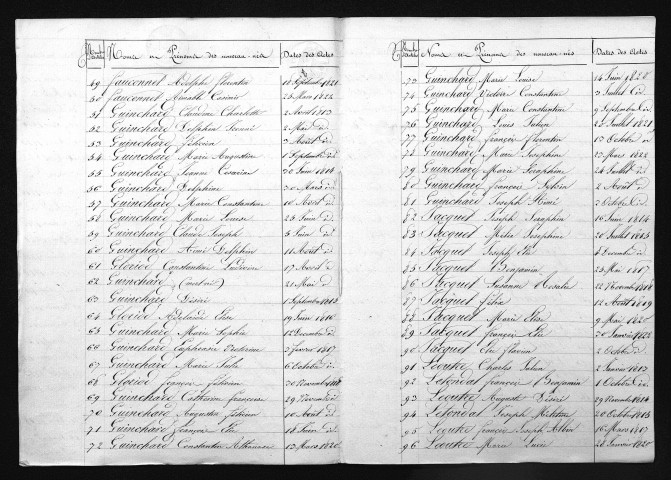 Noms et Prénoms des nouveau-nés Dates des Actes
49 Fauconnet Adolphe Florentin 18 Septembre 1821
50 Fauconnet Amable Casimir 26 Mars 1822
51 Guinchard Charlotte 2 Avril 1813
52 Guinchard Delphin 2 Mai id
53 Guinchard Félicien 3 Août id
54 Guinchard Marie Augustine 1 Septembre id
55 Guinchard Jeanne Césarine 30 1814
56 Guinchard Delphine 30 Mars id
57 Guinchard Marie Constantine 10 Août id
58 Guinchard Marie Louise 25 Juin id
59 Guinchard Claude Joseph 5 Juin id
60 Guinchard Aimé Delphin 11 Août id
61 Gloriod Constantin 17 Août id
62 Guinchard 21 Mai id
63 Guinchard Désiré 1 Septembre
64 Gloriod Mélanie Elise 19 Juin 1816
65 Guinchard Marie Sophie 12 Décembre id
66 Guinchard 3 Février 1817
67 Guinchard Marie Julie 6 Octobre id
68 Gloriod françois félicien 30 Novembre
69 Guinchard Catherine françoise 29 Novembre id
70 Guinchard Augustin félicien 10 Août id
71 Guinchard françois Elie 18 Juin id
72 Guinchard Constantin Athanase 13 Mars 1820
Noms et Prénoms des nouveau-nés Dates des Actes
73 Guinchard Marie Louise 14 Juin 1820
74 Guinchard Victor Constantin 3 Juillet id
75 Guinchard Marie Constantine 9 Septembre id
76 Guinchard Louis Julien 25 Juillet 1821
77 Guinchard françois florentin 13 Octobre id
78 Guinchard Marie Joséphine 13 Mars 1822
79 Guinchard Marie Séraphine 24 Juillet id
80 Guinchard françois Sylvain 2 Août id
81 Guinchard Joseph Aimé 3 Octobre id
82 Jacquet Joseph Séraphin 16 Juin 1814
83 Jacquet Marie Joséphine 20 Juillet 1815
84 Jacquet Joseph Elie 6 Décembre id
85 Jacquet Benjamin 25 Mai 1817
86 Jacquet Suzanne Rosalie 22 Novembre 1818
87 Jacquet félix 12 Août 1819
88 Jacquet Marie Elise 9 Mai 1820
89 Jacquet françois Elie 30 Janvier 1822
90 Jacquet Elie flavien 2 Octobre id
91 Charles Julien 2 Janvier 1813
92 Letondal françois Benjamin 1 Octobre id
93 Auguste Désiré 29 Novembre 1814
94 Letondal Joseph 20 Octobre 1815
95 françois Joseph Albin 16 Mars 1817
96 Marie Lucie 28 Janvier 1820